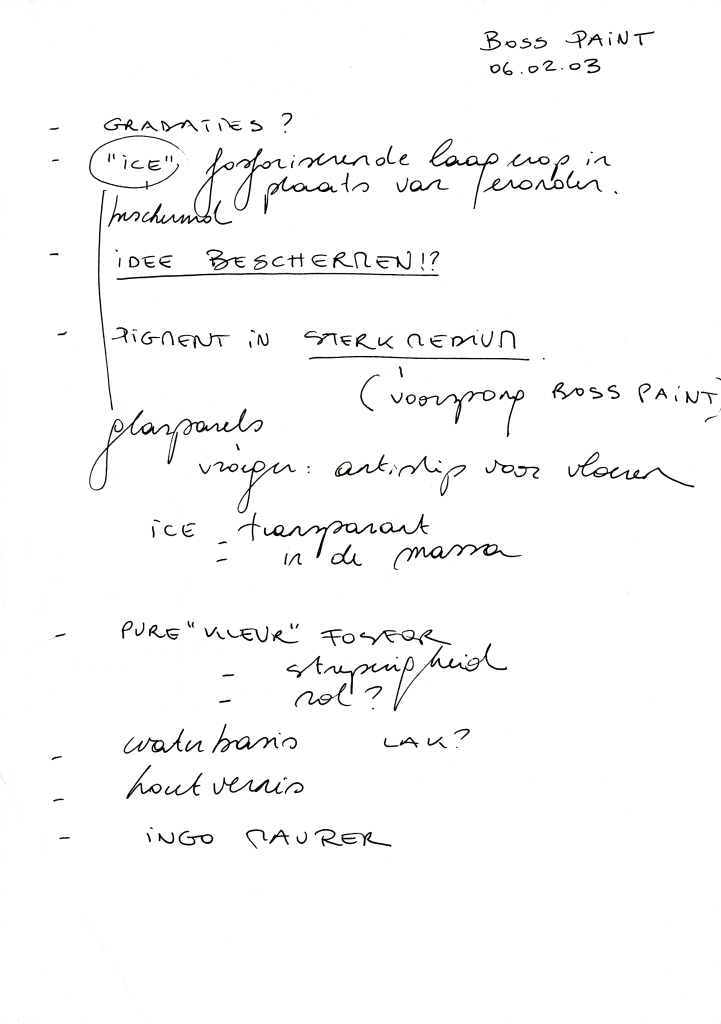 BOSS PAINT
06.02.03
- GRADATIES ?
- "ICE" fosforiserende laag erop in
plaats van eronder.
beschermd
- IDEE BESCHERMEN!?
- PIGMENT IN STERK MEDIUM
(voorsprong BOSS PAINT)
glasparels
vroeger: antislip voor vloeren
ICE - transparant
- in de massa
- PURE "KLEUR" FOSFOR
- streperigheid
- rol ?
- waterbasis LAK?
- houtvernis
- INGO MAURER